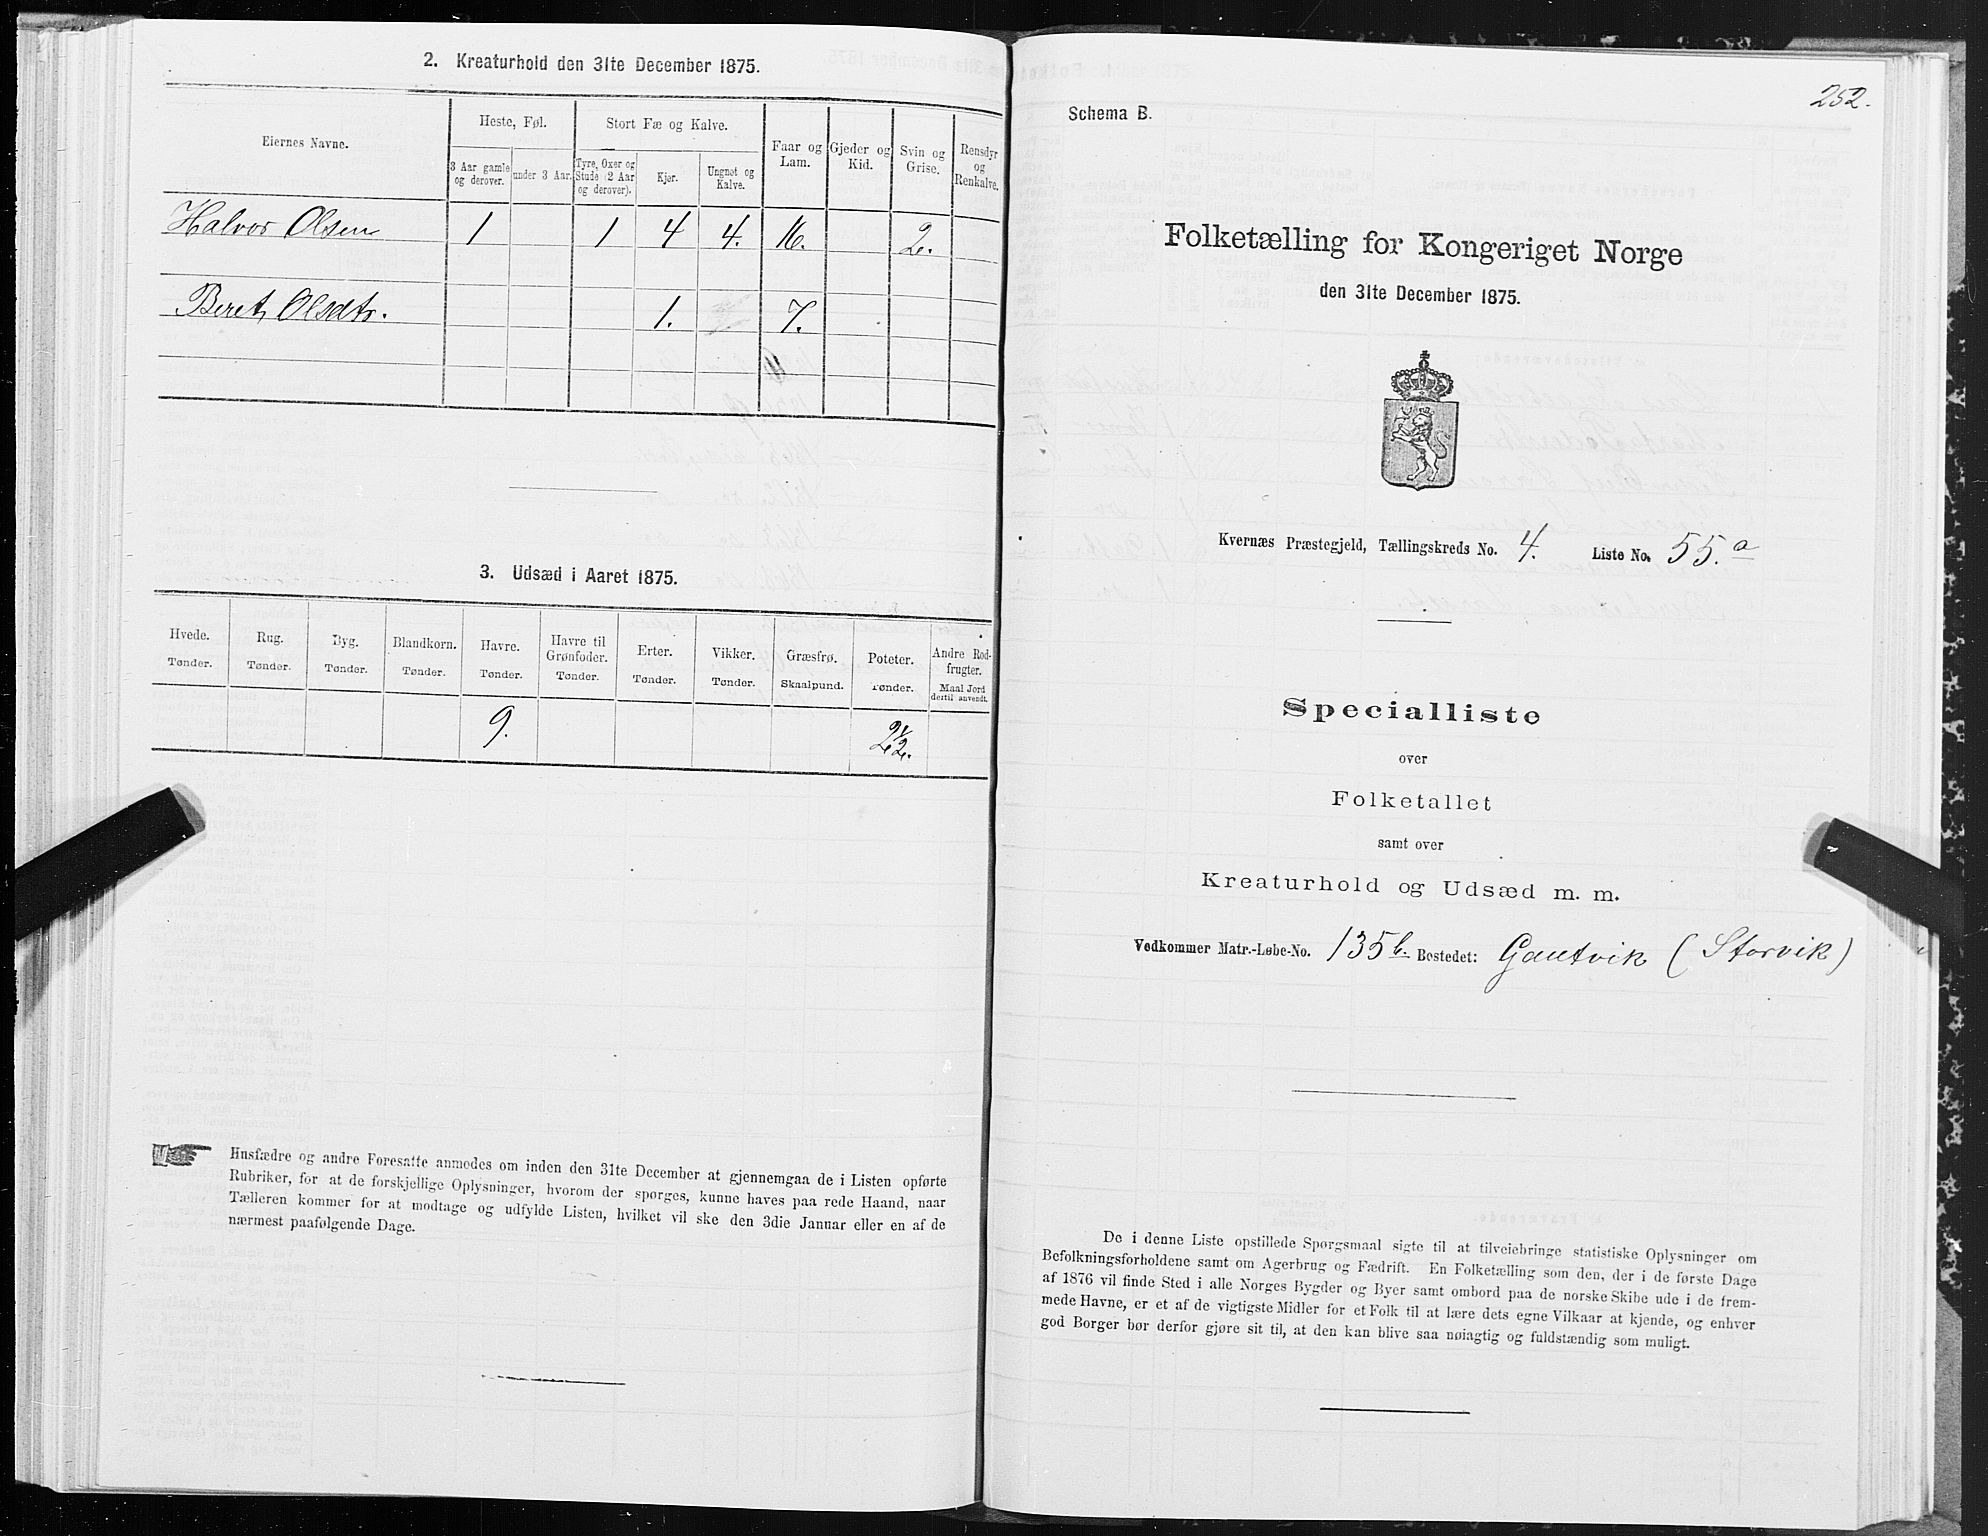 2. Kreaturhold den 31te December 1875.
Eiernes Navne.
Heste, Føl.
Stort Fæ og Kalve.
Faar og Lam.
Gjeder og Kid.
Svin og Grise.
Rensdyr og Renkalve.
3 Aar gamle og derover.
under 3 Aar.
Tyre, Oxer og Stude (2 Aar og derover).
Kjør.
Ungnøt og Kalve.
Halvor Olsen 1 1 4 4. 16. 2.
Beret Olsdtr. 1. 7.
3. Udsæd i Aaret 1875.
Hvede. Rug. Byg. Blandkorn. Havre. Havre til Grønfoder. Erter. Vikker. Græsfrø. Poteter. Andre Rodfrugter.
Tønder. Tønder. Tønder. Tønder. Tønder. Tønder. Tønder. Tønder. Skaalpund. Tønder. Maal Jord dertil anvendt.
9. 2 1/2.
Husfædre og andre Foresatte anmodes om inden den 31te December at gjennemgaa de i Listen opførte
Rubriker, for at de forskjellige Oplysninger, hvorom der spørges, kunne haves paa rede Haand, naar
Tælleren kommer for at modtage og udfylde Listen, hvilket vil ske den 3die Januar eller en af de
nærmest paafølgende Dage.
252.
Schema B.
Folketælling for Kongeriget Norge
den 31te December 1875.
Kvernæs Præstegjeld, Tællingskreds No. 4. Liste No. 55.a
Specialliste
over
Folketallet
samt over
Kreaturhold og Udsæd m. m.
Vedkommer Matr.-Løbe-No. 135b. Bostedet: Gautvik (Storvik)
De i denne Liste opstillede Spørgsmaal sigte til at tilveiebringe statistiske Oplysninger om
Befolkningsforholdene samt om Agerbrug og Fædrift. En Folketælling som den, der i de første Dage
af 1876 vil finde Sted i alle Norges Bygder og Byer samt ombord paa de norske Skibe ude i de frem-
mede Havne, er et af de vigtigste Midler for et Folk til at lære dets egne Vilkaar at kjende, og enhver
god Borger bør derfor gjøre sit til, at den kan blive saa nøiagtig og fuldstændig som muligt.